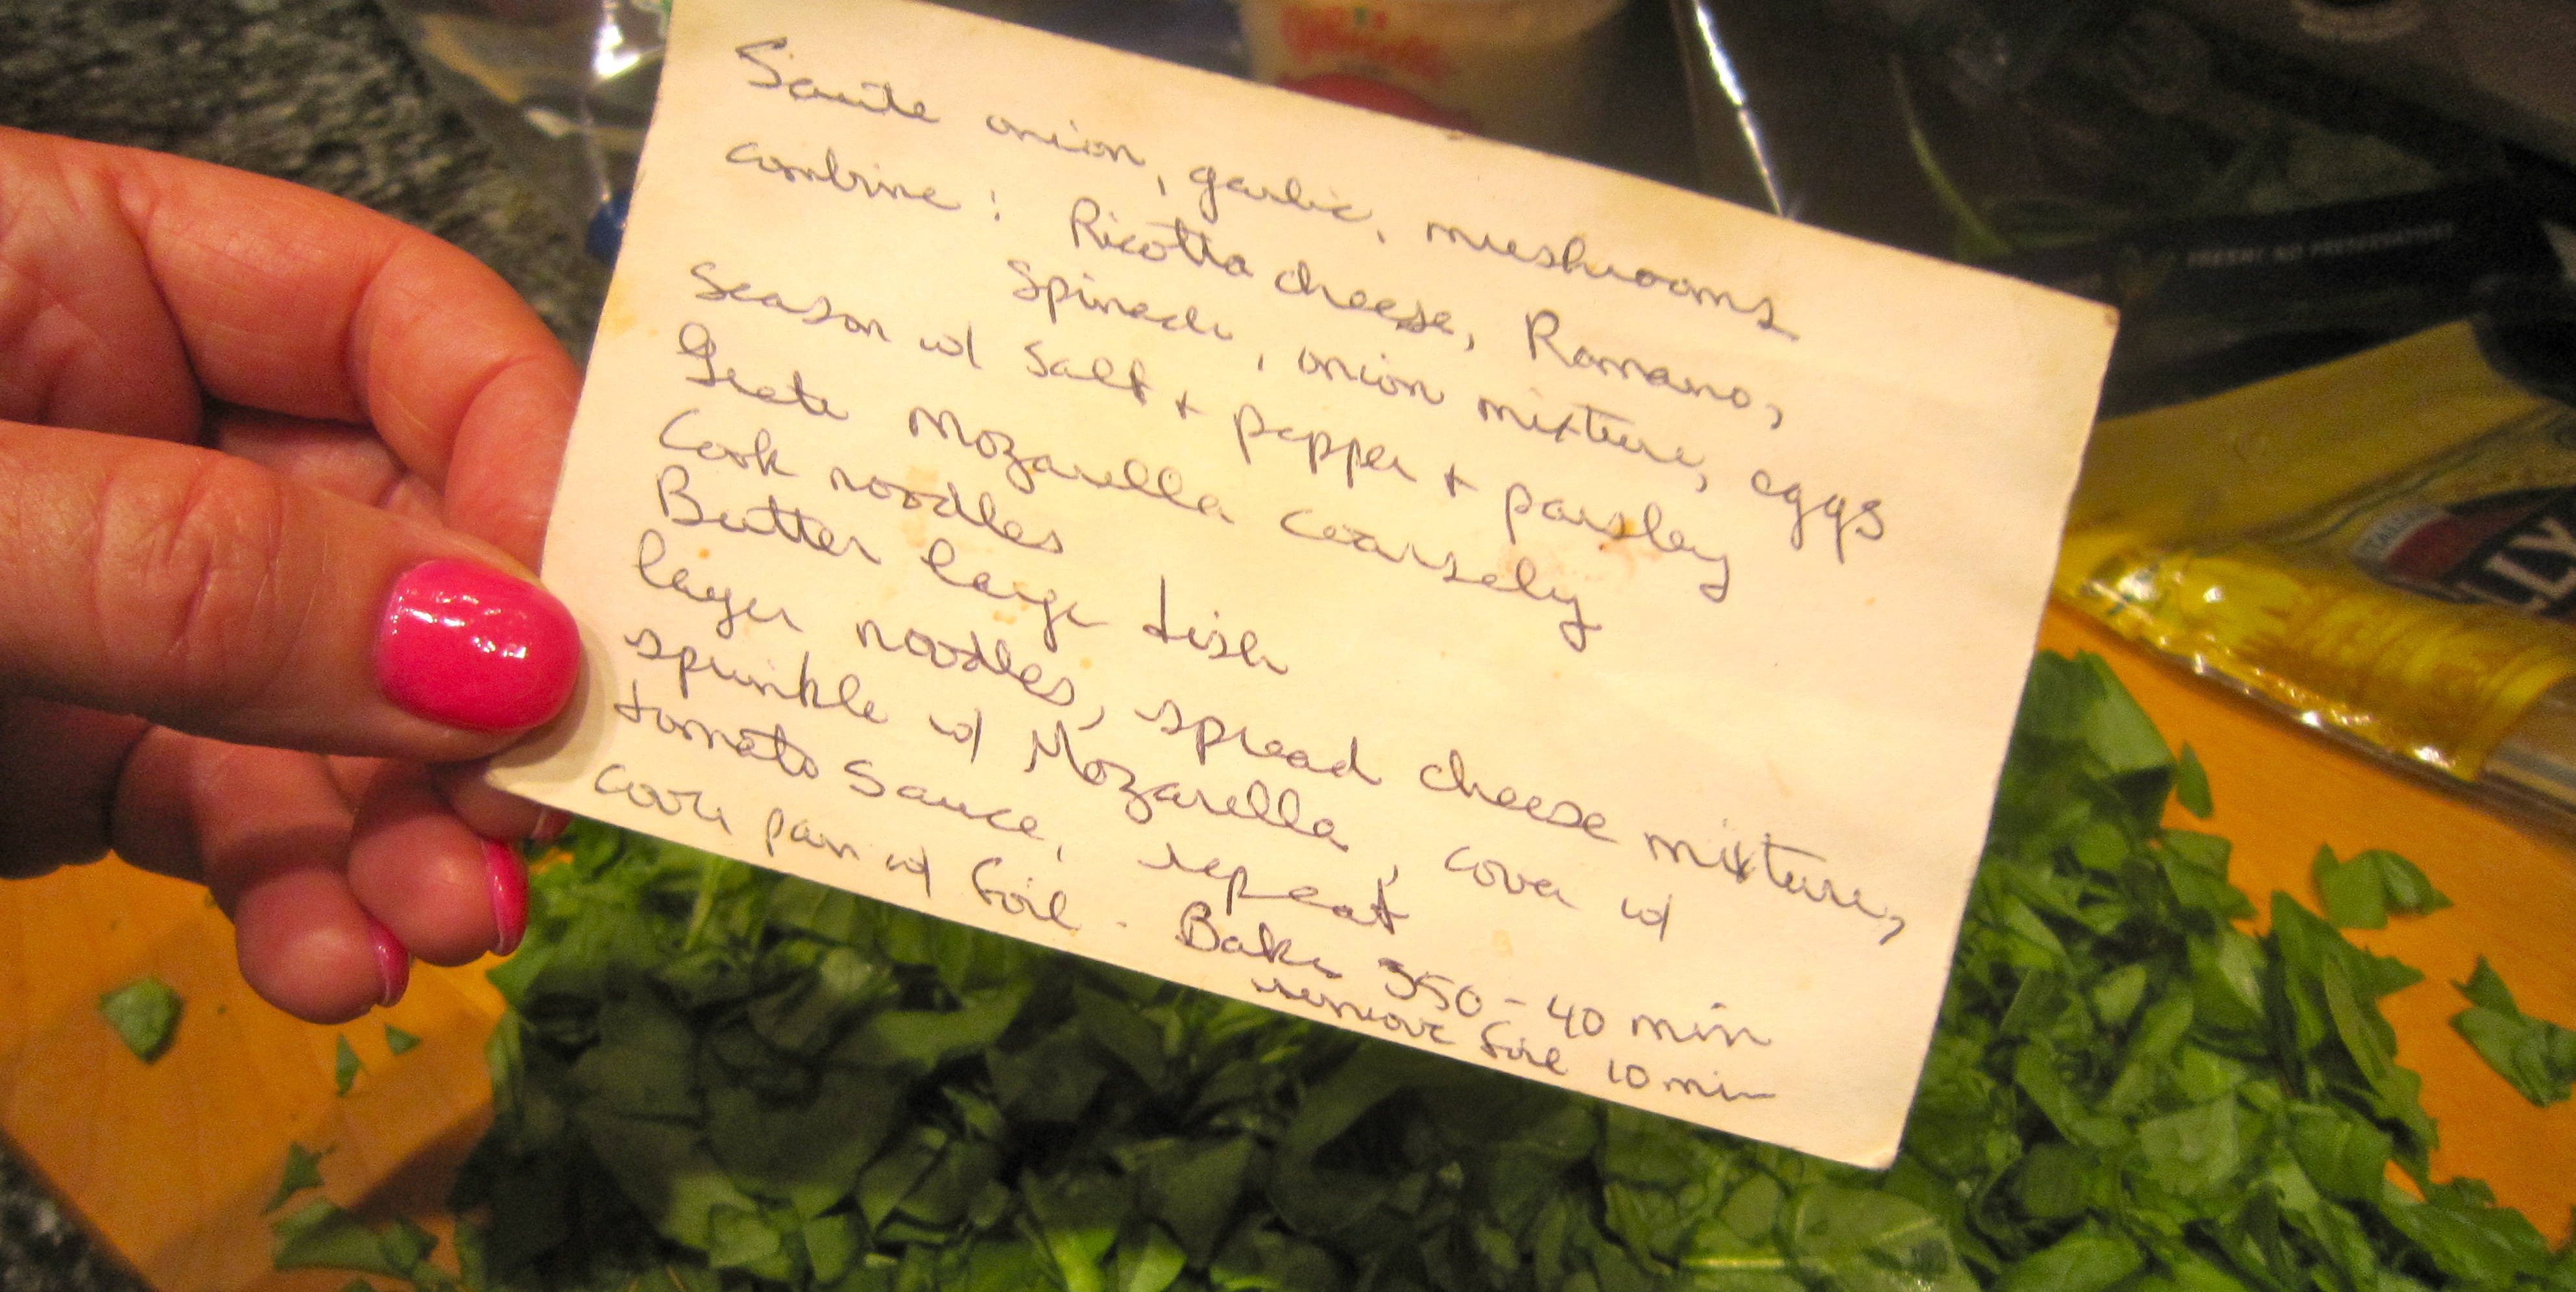 Saute onion, garlic, mushrooms
combine: Ricotta cheese, Romano,
Spinach, onion mixture, eggs
Season w/ Salt + pepper + parsley
Grate Mozarella coarsely
Cook noodles
Butter large dish
layer noodles, spread cheese mixture,
sprinkle w/ Mozarella, cover w/
tomato sauce, repeat
cover pan w/ foil. Bake 350-40 min
remove foil 10 min
FRESH! NO PRESERVATIVES
LLY